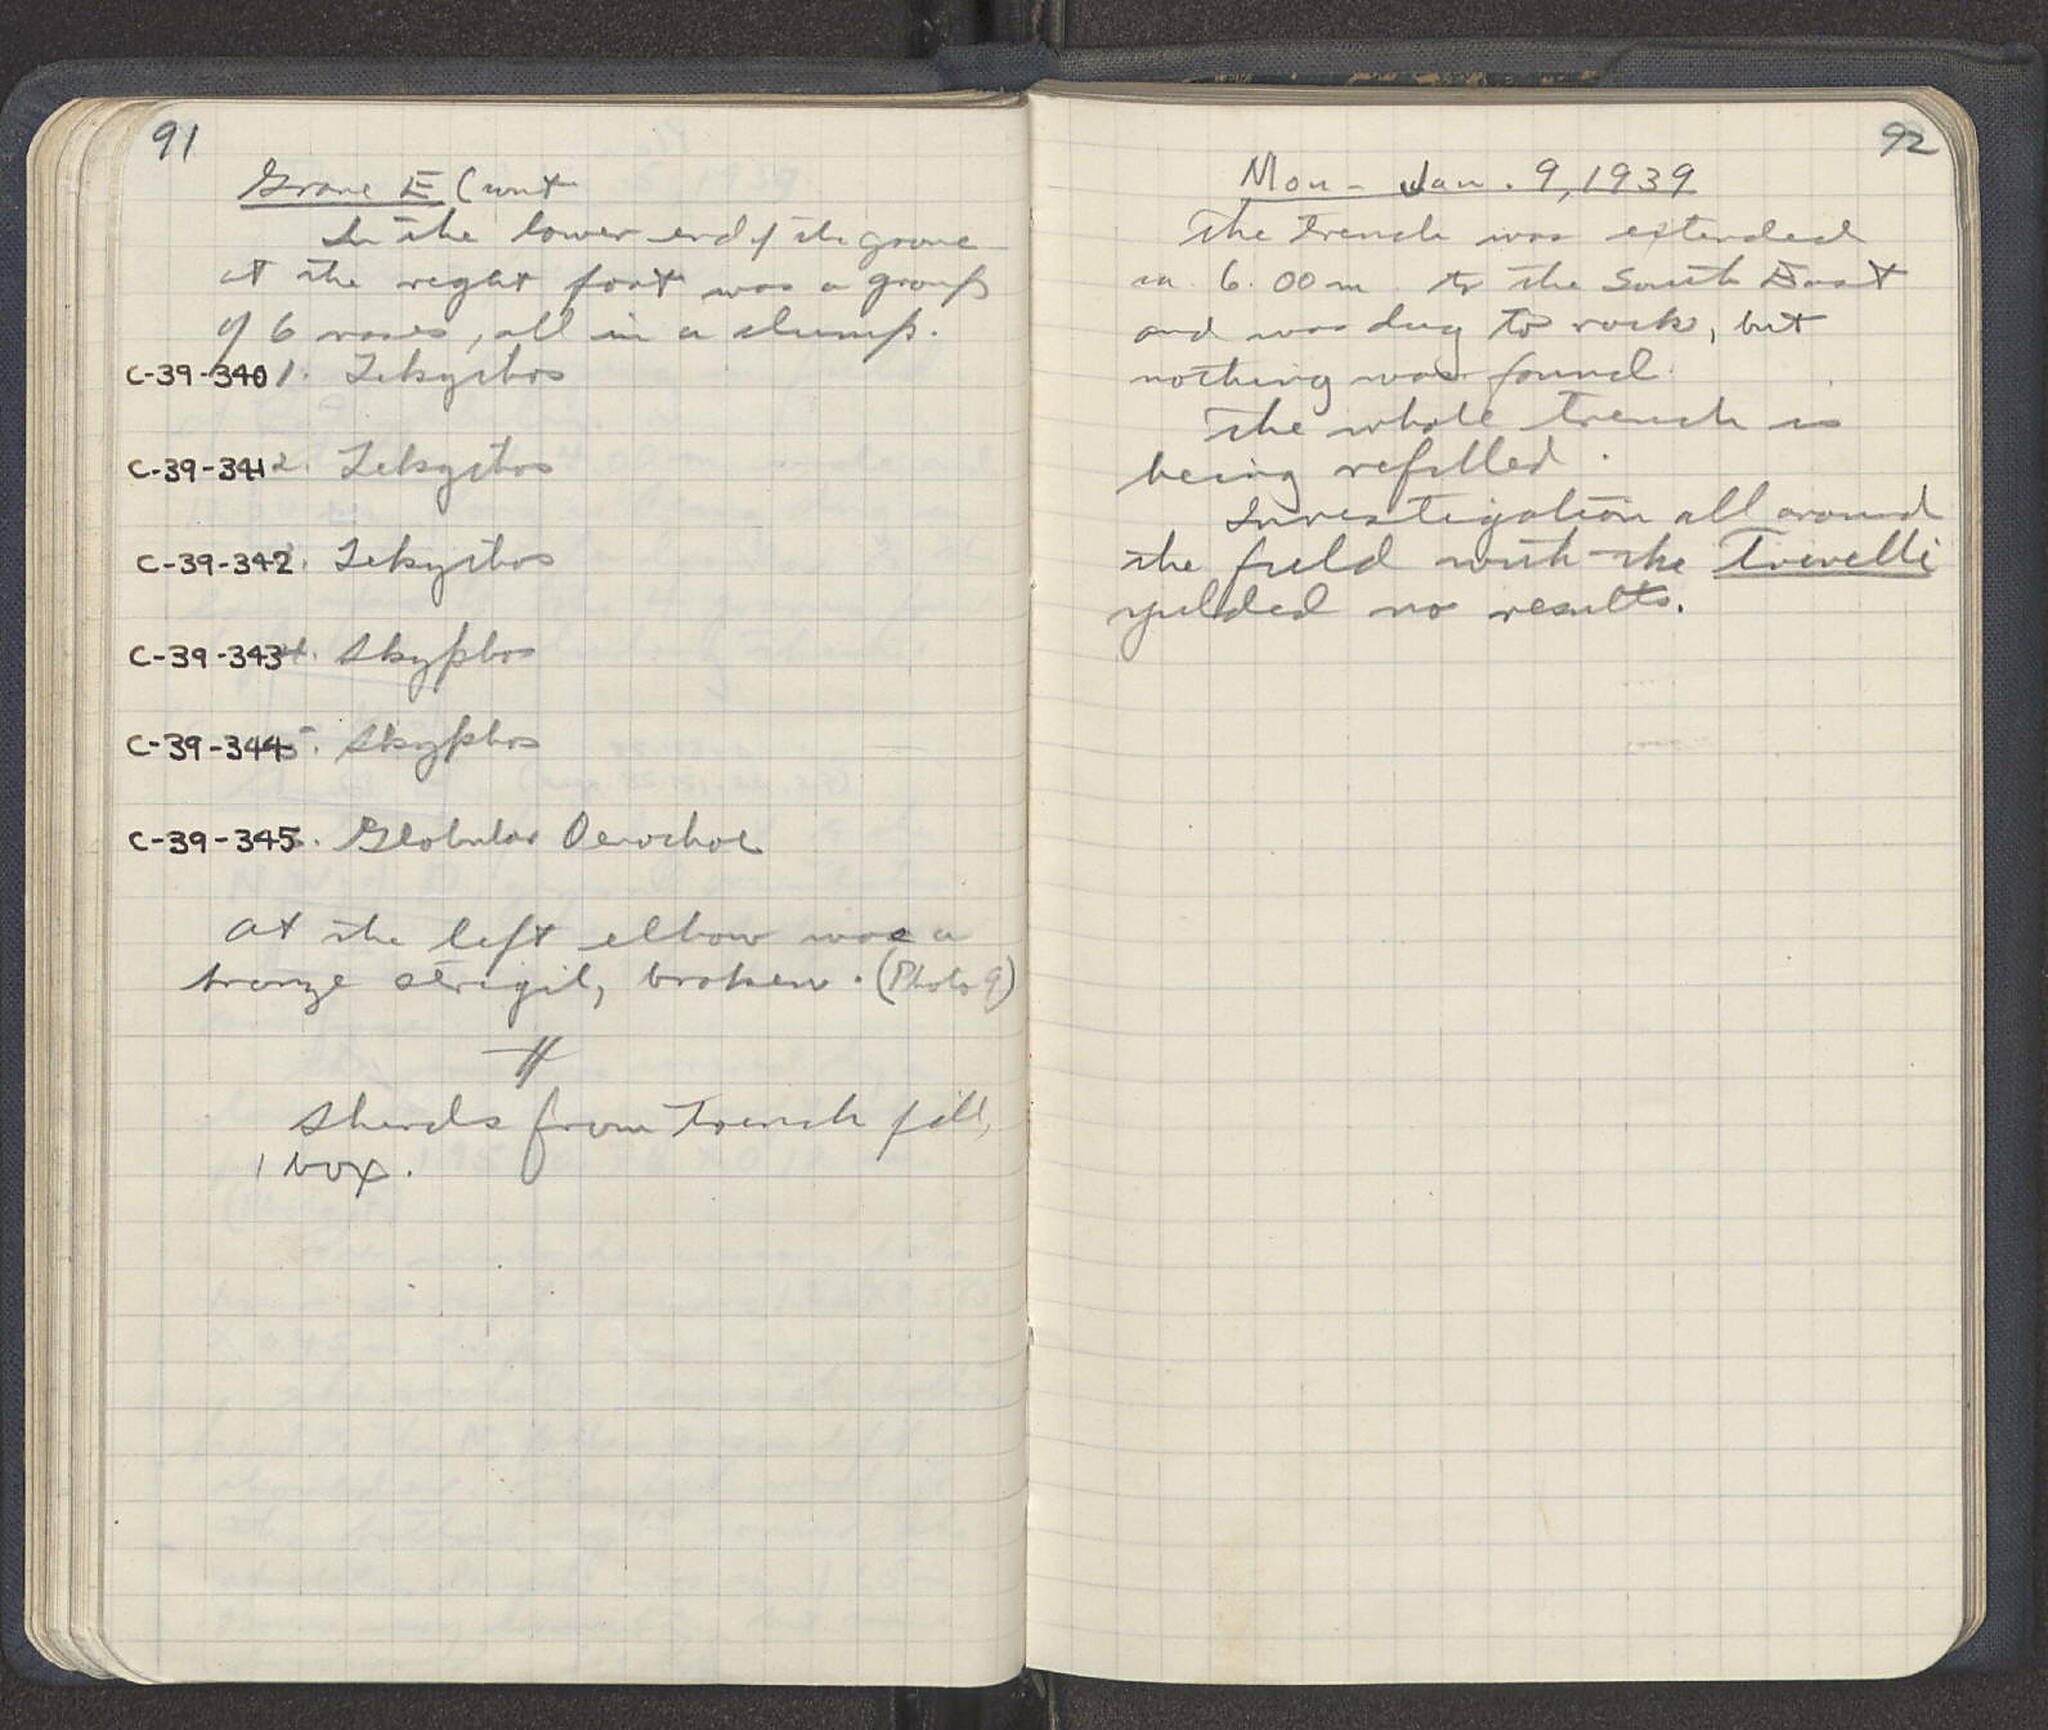 91
Grave E Cont
In the lower end of the grave
at the right foot was a group
of 6 vases, all in a clump.
C-39-340 1. Lekythos
C-39-341 2. Lekythos
C-39-342 . Lekythos
C-39-343 4. Skyphos
C-39-344 5. Skyphos
C-39-345 . Globular Oenochoe
At the left elbow was a
bronze strigil, broken. (Photo 9)
Sherds from trench fill,
1 box.
92
Mon - Jan. 9, 1939
The trench was extended
6.00 m to the South East
and was dug to rock, but
nothing was found.
The whole trench is
being refilled.
Investigation all around
the field with the Trivelli
yielded no results.